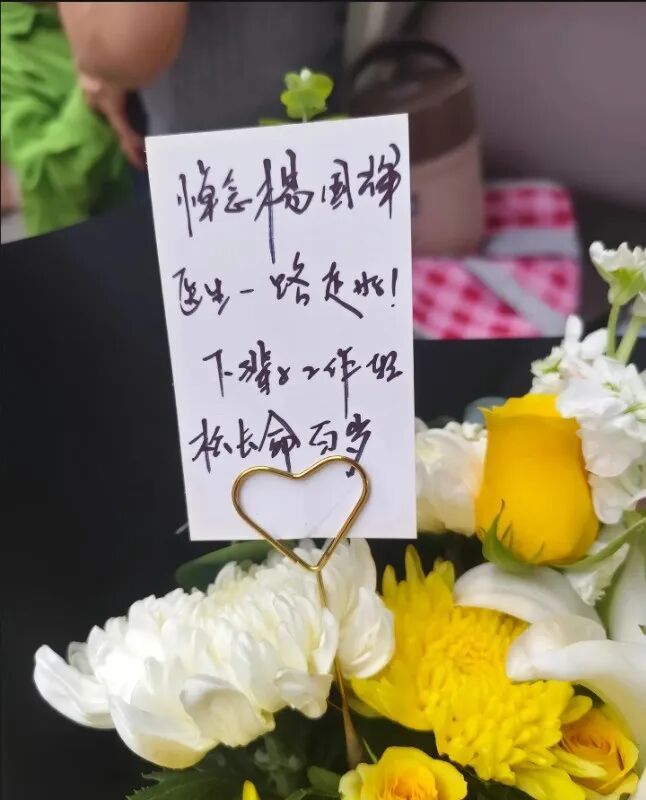 悼念杨国雄
医生一路走好!
下辈子工作轻
松长命百岁